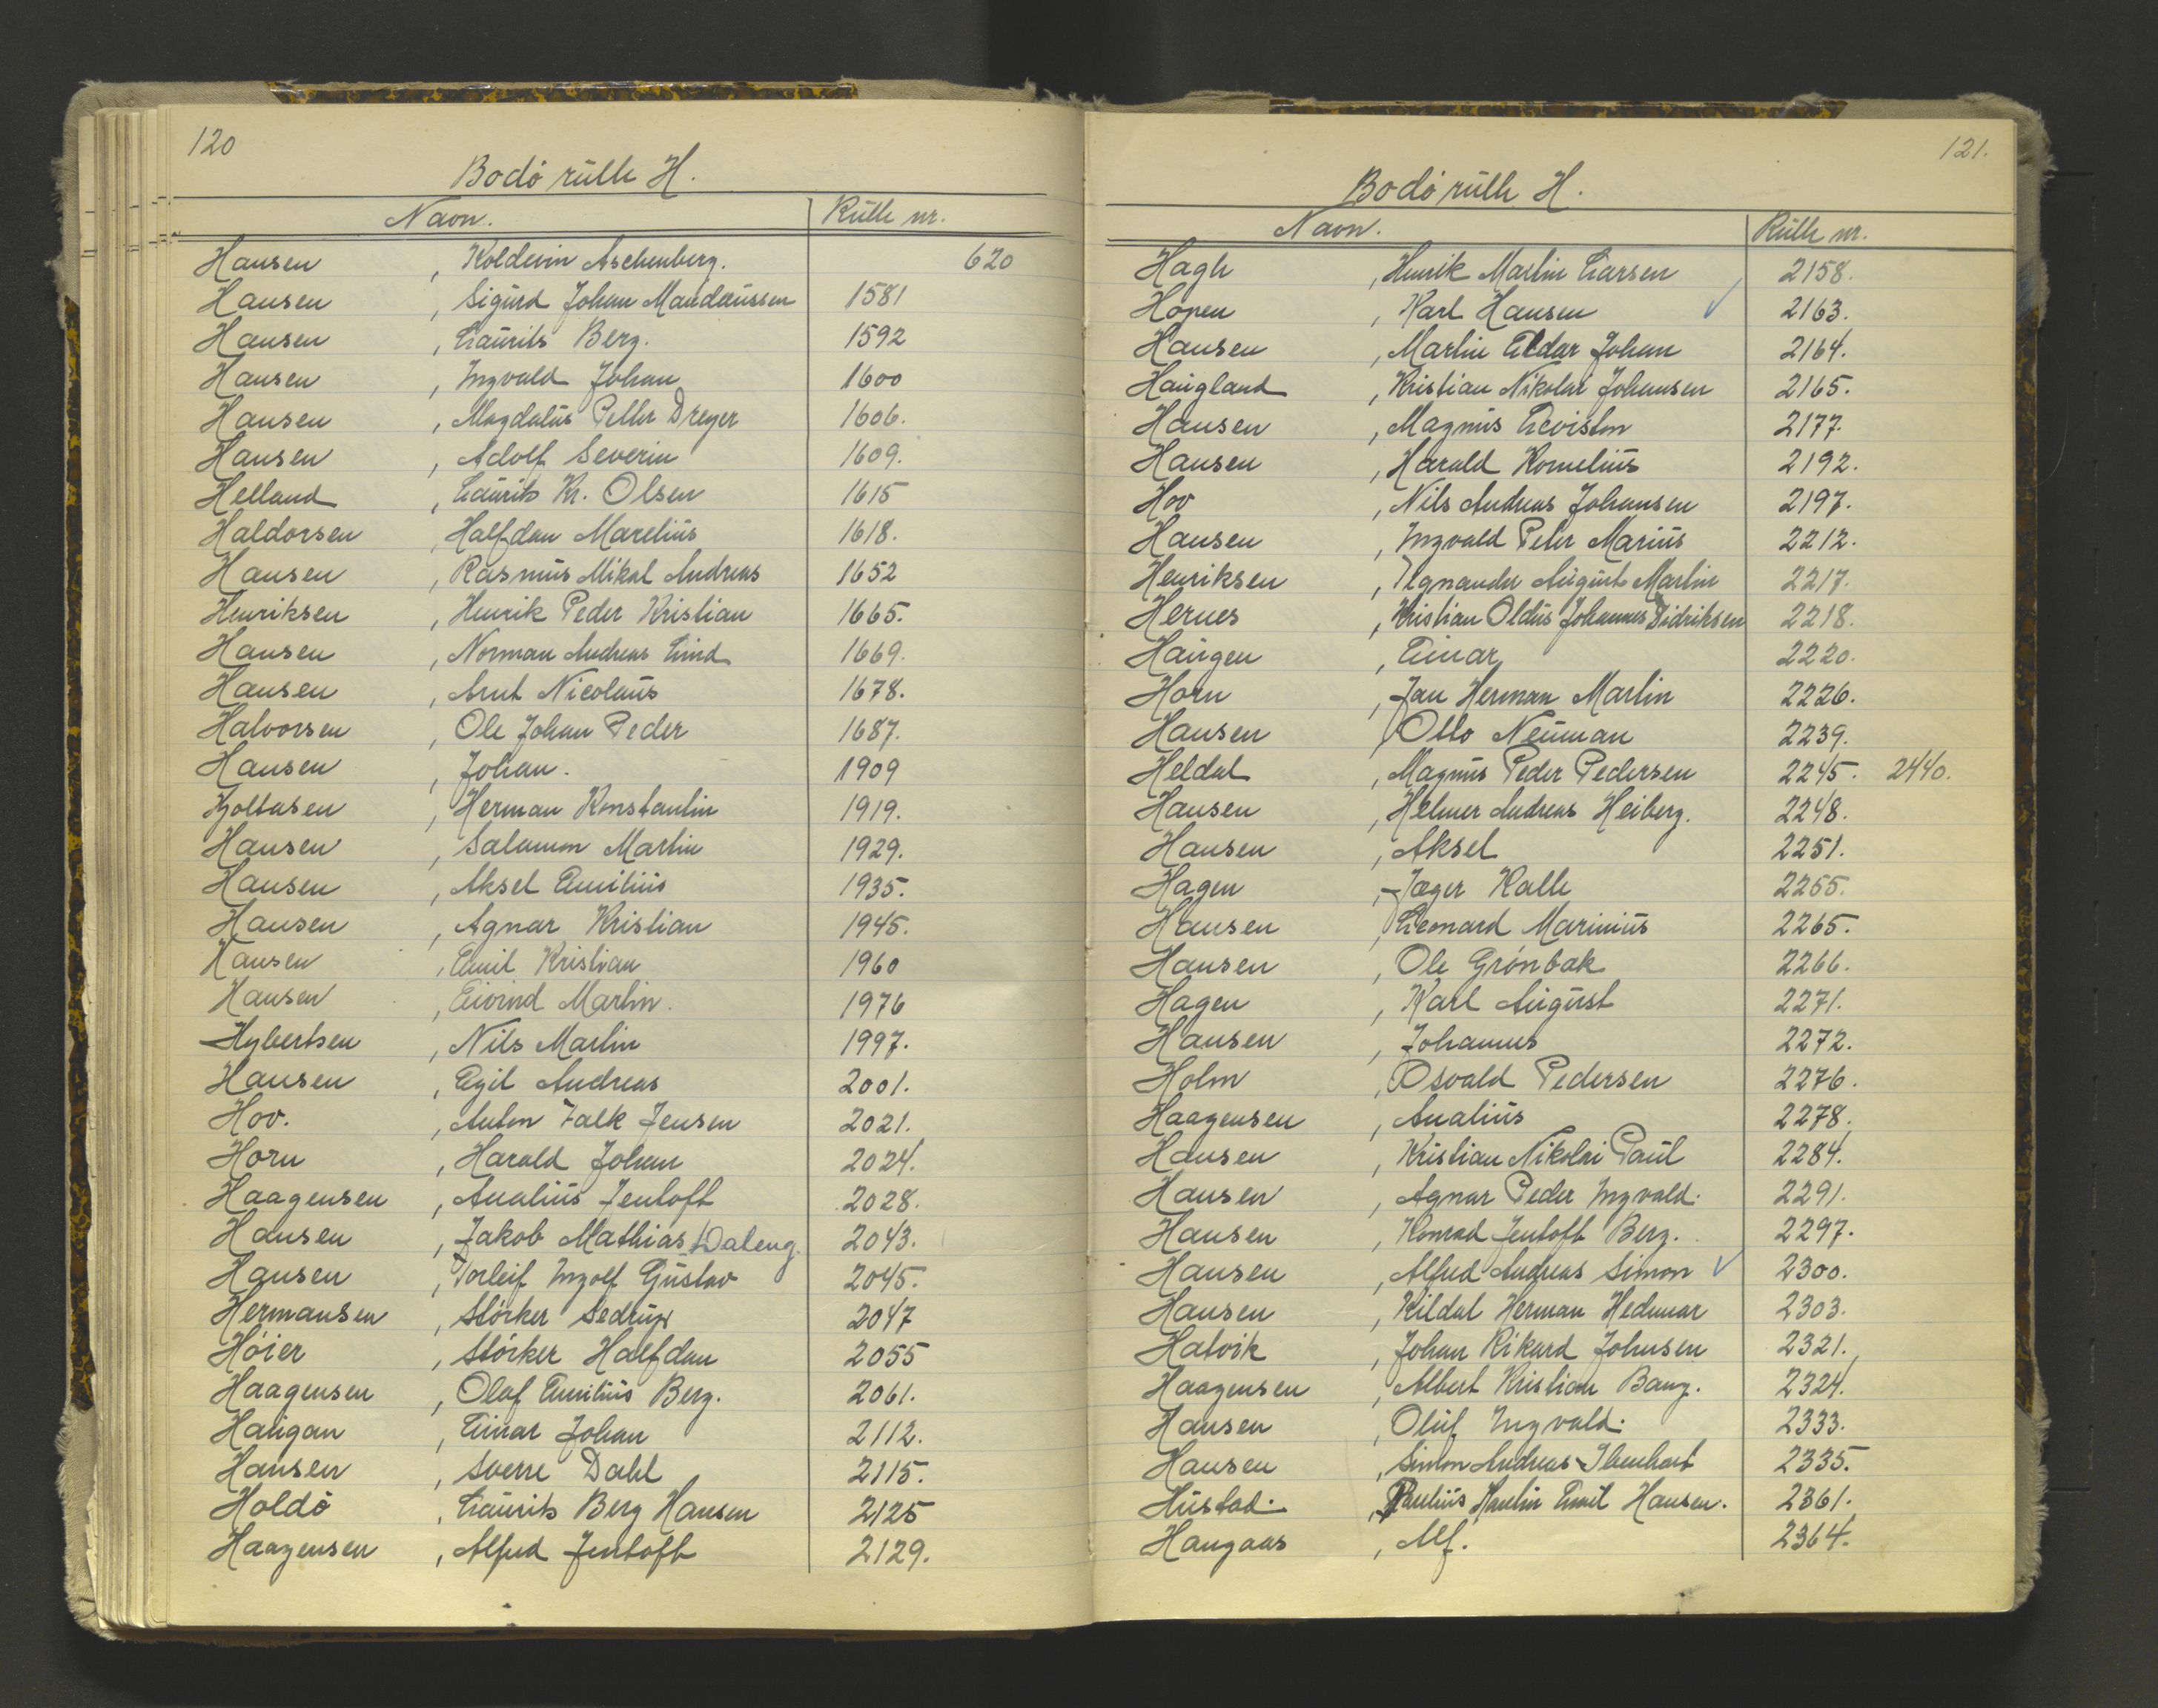 120
Bodø rulle H.
Navn. Rulle nr.
Hansen, Koldevin Aschenberg. 620
Hansen, Sigurd Johan Mandæussen 1581
Hansen, Laurits Berg. 1592
Hansen, Ingvald Johan 1600
Hansen, Magdalus Petter Dreyer 1606.
Hansen, Adolf Severin 1609.
Helland, Laurits Kr. Olsen 1615
Haldorsen, Halfdan Marelius 1618.
Hansen, Rasmus Mikal Andreas 1652
Henriksen, Henrik Peder Kristian 1665.
Hansen, Norman Andreas Lind 1669.
Hansen, Arnt Nicolaus 1678.
Halvorsen, Ole Johan Peder 1687.
Hansen, Johan. 1909
Holtasen, Herman Konstantin 1919.
Hansen, Salamon Martin 1929.
Hansen, Aksel Emilius 1935.
Hansen, Agnar Kristian 1945.
Hansen, Emil Kristian 1960
Hansen, Eivind Martin. 1976
Hybertsen, Nils Martin 1997.
Hansen, Egil Andreas 2001.
Hov., Anton Falk Jensen 2021.
Horn, Harald Johan 2024.
Haagensen, Analius Jentoft 2028.
Hansen, Jakob Mathias Waleng. 2043.
Hansen, Torleif Ingolf Gustav 2045.
Hermansen, Størker Sedrup 2047
Høier, Størker Halfdan 2055
Haagensen, Olaf Emilius Berg. 2061.
Haugan, Einar Johan 2112.
Hansen, Sverre Dahl 2115.
Holdø, Laurits Berg Hansen 2125
Haagensen, Alfred Jentoft 2129.
121.
Bodø rulle H.
Navn. Rulle nr.
Hagh, Henrik Martin Larsen 2158.
Hopen, Karl Hansen ✓ 2163.
Hansen, Martin Eldar Johan 2164.
Haugland, Kristian Nikolai Johansen 2165.
Hansen, Magnus Leviston 2177.
Hansen, Harald Kornelius 2192.
Hov, Nils Andreas Johansen 2197.
Hansen, Ingvald Peter Marius 2212.
Henriksen, Tegnander August Martin 2217.
Hernes, Kristian Oldus Johannes Didriksen 2218.
Haugen, Einar 2220.
Horn, Jan Herman Martin 2226.
Hansen, Otto Neuman 2239.
Heldal, Magnus Peder Pedersen 2245. 2440.
Hansen, Helmer Andreas Heiberg. 2248.
Hansen, Aksel 2251.
Hagen, Jæger Kalle 2255.
Hansen, Leonard Marinius 2265.
Hansen, Ole Grønbak 2266.
Hagen, Karl August 2271.
Hansen, Johannes 2272.
Holm, Osvald Pedersen 2276.
Haagensen, Analius 2278.
Hansen, Kristian Nikolai Paul 2284.
Hansen, Agnar Peder Ingvald. 2291.
Hansen, Konrad Jentoft Berg. 2297.
Hansen, Alfred Andreas Simon ✓ 2300.
Hansen, Kildal Herman Hedmar 2303.
Hatvik, Johan Rikard Johnsen 2321.
Haagensen, Albert Kristian Bang. 2324.
Hansen, Oluf Ingvald. 2333.
Hansen, Simon Andreas Ibenhart 2335.
Hustad., Paulius Haulin Emil Hansen. 2361.
Haugaas, Alf. 2364.